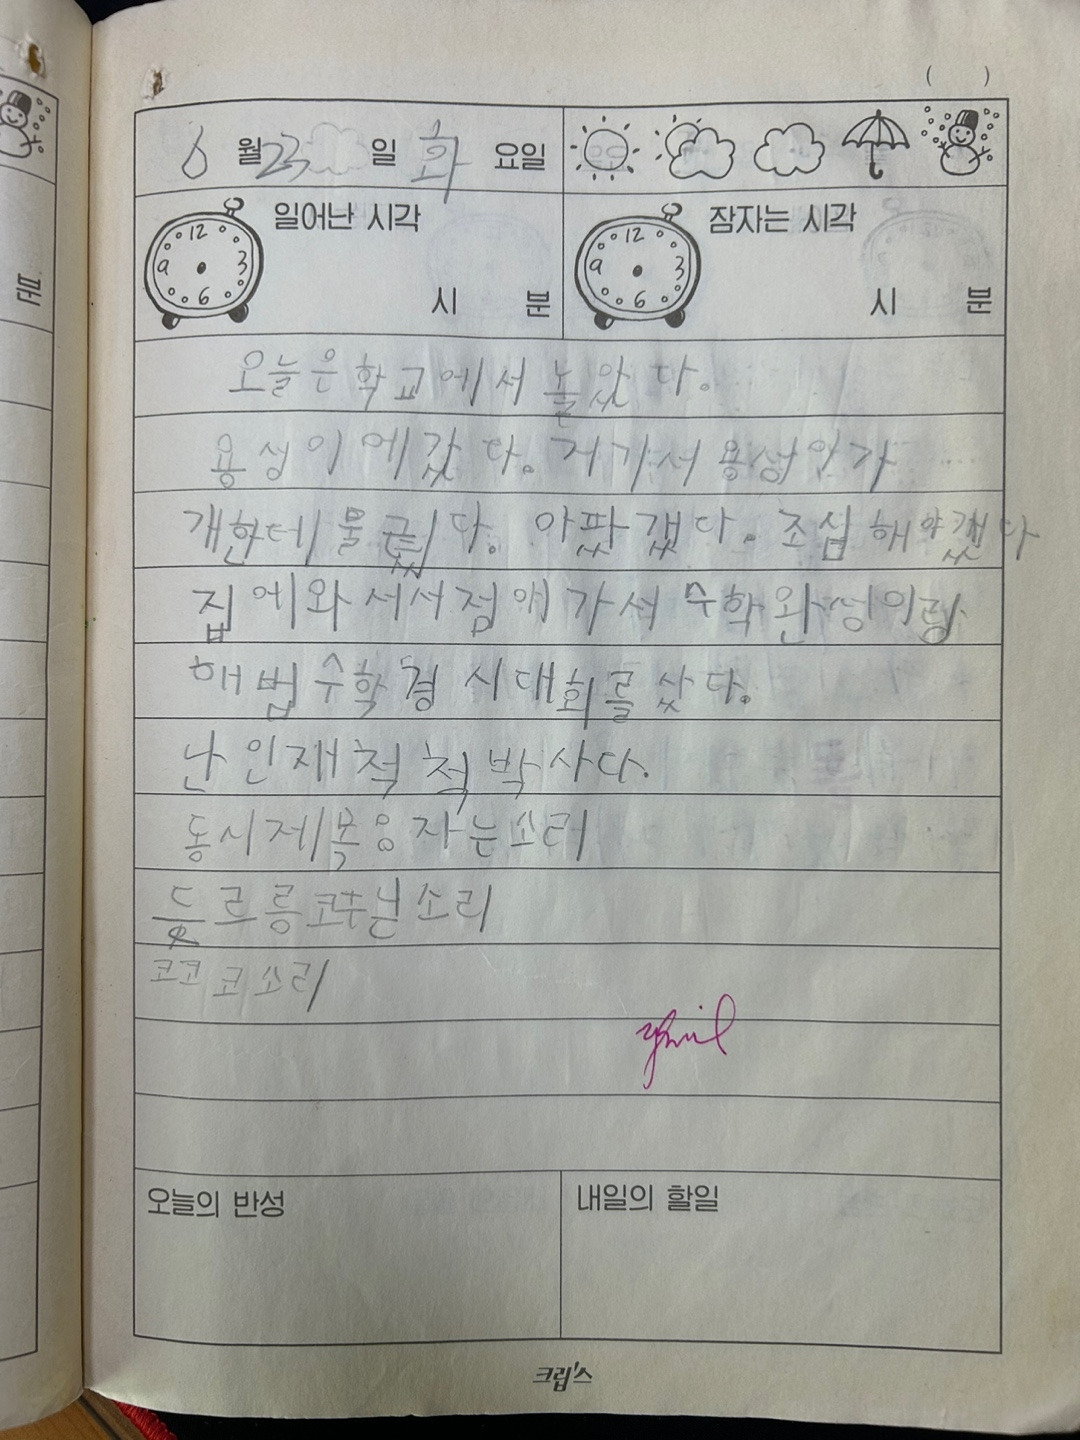 ( )
6 월 23 일 화 요일
일어난 시각
잠자는 시각
12 3 6 9
12 3 6 9
시 분
시 분
오늘은 학교에서 놀았다.
용성이에 갔다. 거기서 용성이가
개한테 물렸다. 아팠갰다. 조심해야갰다
집에와서 서점에 가서 수학완성이랑
해법수학경시대회를 샀다.
난 인재척척박사다.
동시제목응자는소리
르릉 소리
코코코소리
오늘의 반성
내일의 할일
크립스
분